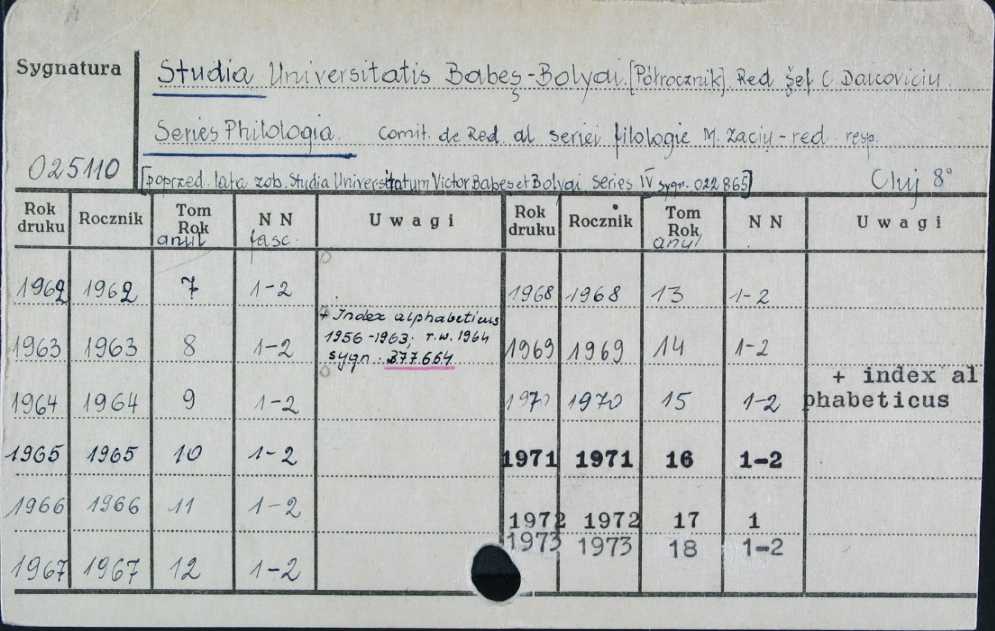 Sygnatura
Studia Universitatis Babeş-Bolyai. [Półrocznik]. Red şef C. Daicoviciu.
Series Philologia. Comit. de Red. al seriei filologie M. Zaciu - red. resp.
025110
[poprzed. lata zob. Studia Universitatum Victor Babeş et Bolyai Series IV sygn. 022865]
Cluj 8°
Rok druku Rocznik Tom Rok anul NN fasc. Uwagi Rok druku Rocznik Tom Rok anul NN Uwagi
1962 1962 7 1-2 1968 1968 13 1-2
+ Index alphabeticus
1956-1963; r.w. 1964
sygn: 377.664
1963 1963 8 1-2 1969 1969 14 1-2
1964 1964 9 1-2 1970 1970 15 1-2 + index al
phabeticus
1965 1965 10 1-2 1971 1971 16 1-2
1966 1966 11 1-2 1972 1972 17 1
1973 1973 18 1-2
1967 1967 12 1-2